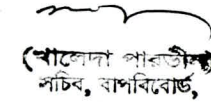 (খালেদা পারভীন)
সচিব, বাপবিবোর্ড,